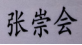 张崇会